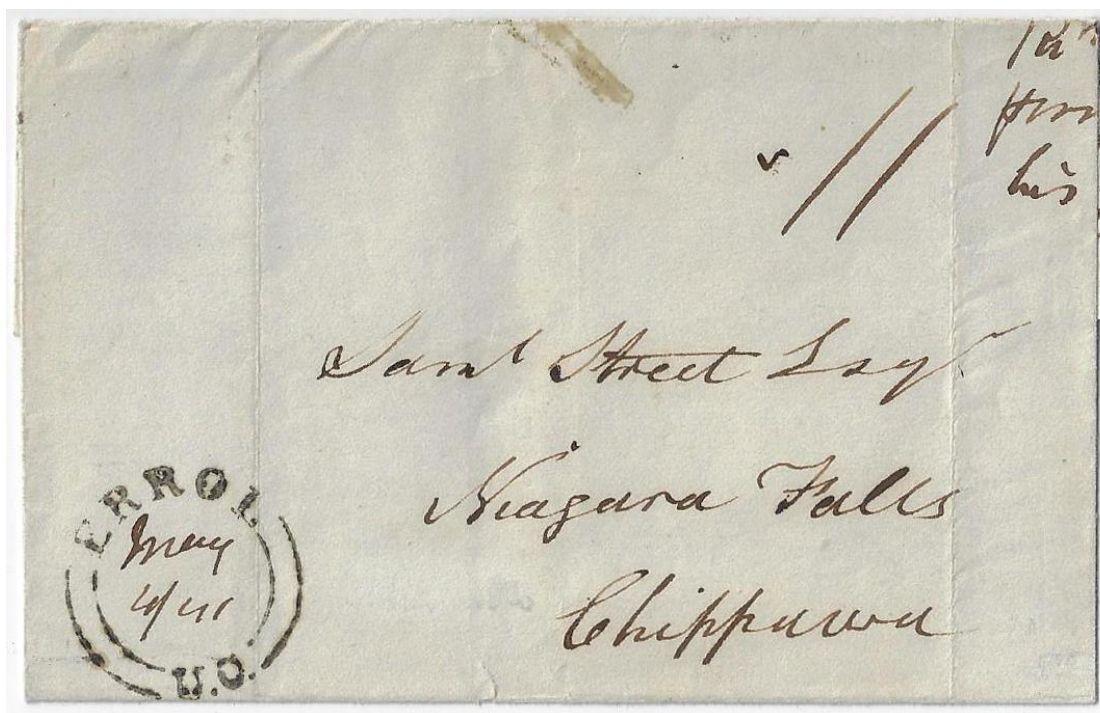 11
his
Saml Street Esqr
Niagara Falls
Chippawa
ERROL
May
4/41
U.C.